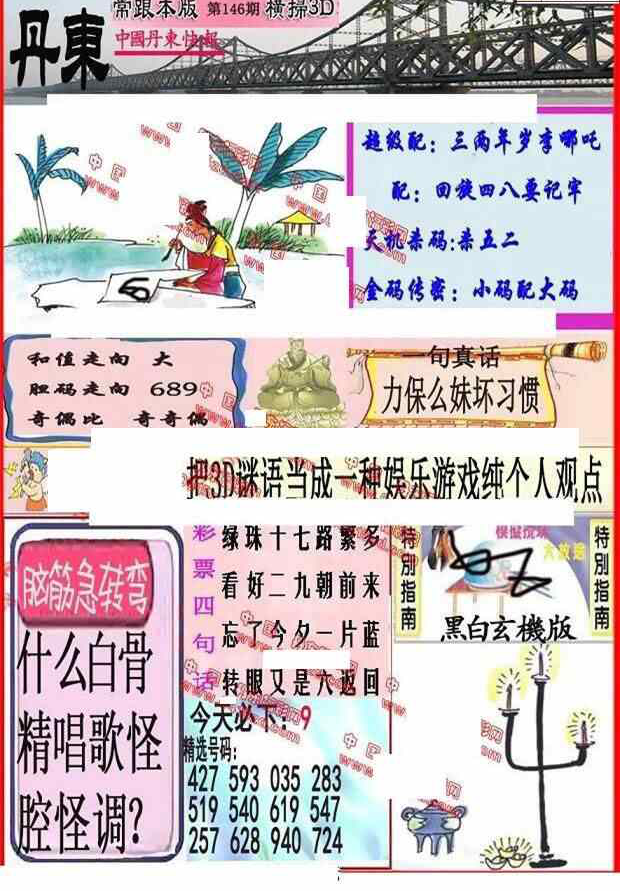 常跟本版 第146期 横掃3D
丹東
中國丹東快報
超级配：三两年岁李哪吒
配：回旋四八要记牢
天机杀码：杀五二
金码传密：小码配大码
和值走向 大
胆码走向 689
奇偶比 奇奇偶
一句真话
力保么妹坏习惯
把3D谜语当成一种娱乐游戏纯个人观点
脑筋急转弯
什么白骨
精唱歌怪
腔怪调？
彩票四句话
绿珠十七路繁多
看好二九朝前来
忘了今夕一片蓝
转眼又是六返回
今天必下：9
精选号码：
427 593 035 283
519 540 619 547
257 628 940 724
特別指南
特別指南
黑白玄機版